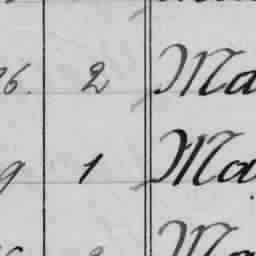 26. 2 Ma
9 1 Ma
Ma